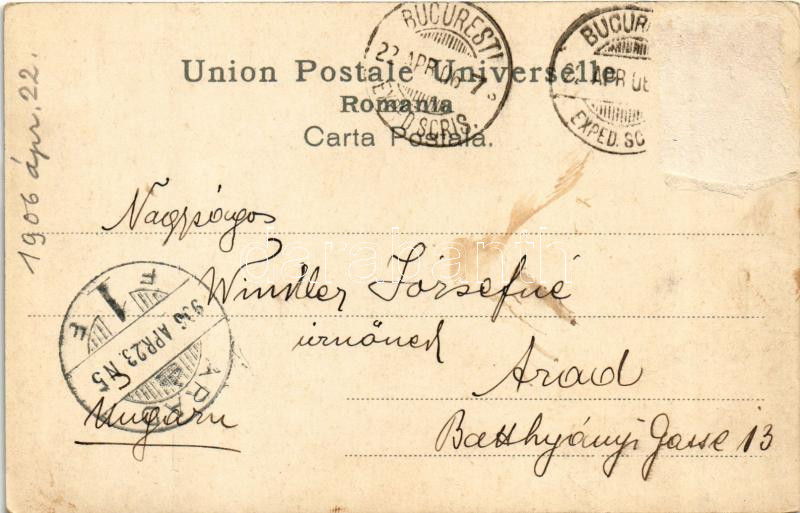 BUCURESTI
22 APR 06 7
EXPED. SCRIS.
BUCUR
22 APR 06
EXPED. SC
Union Postale Universelle
Romania
Carta Postala.
1906 ápr. 22.
Nagyságos
Winkler Józsefné
úrnőnek
Arad
Batthyányi Gasse 13
Ungarn
ARAD
906 APR 23. N5
F 1 F
darabanth